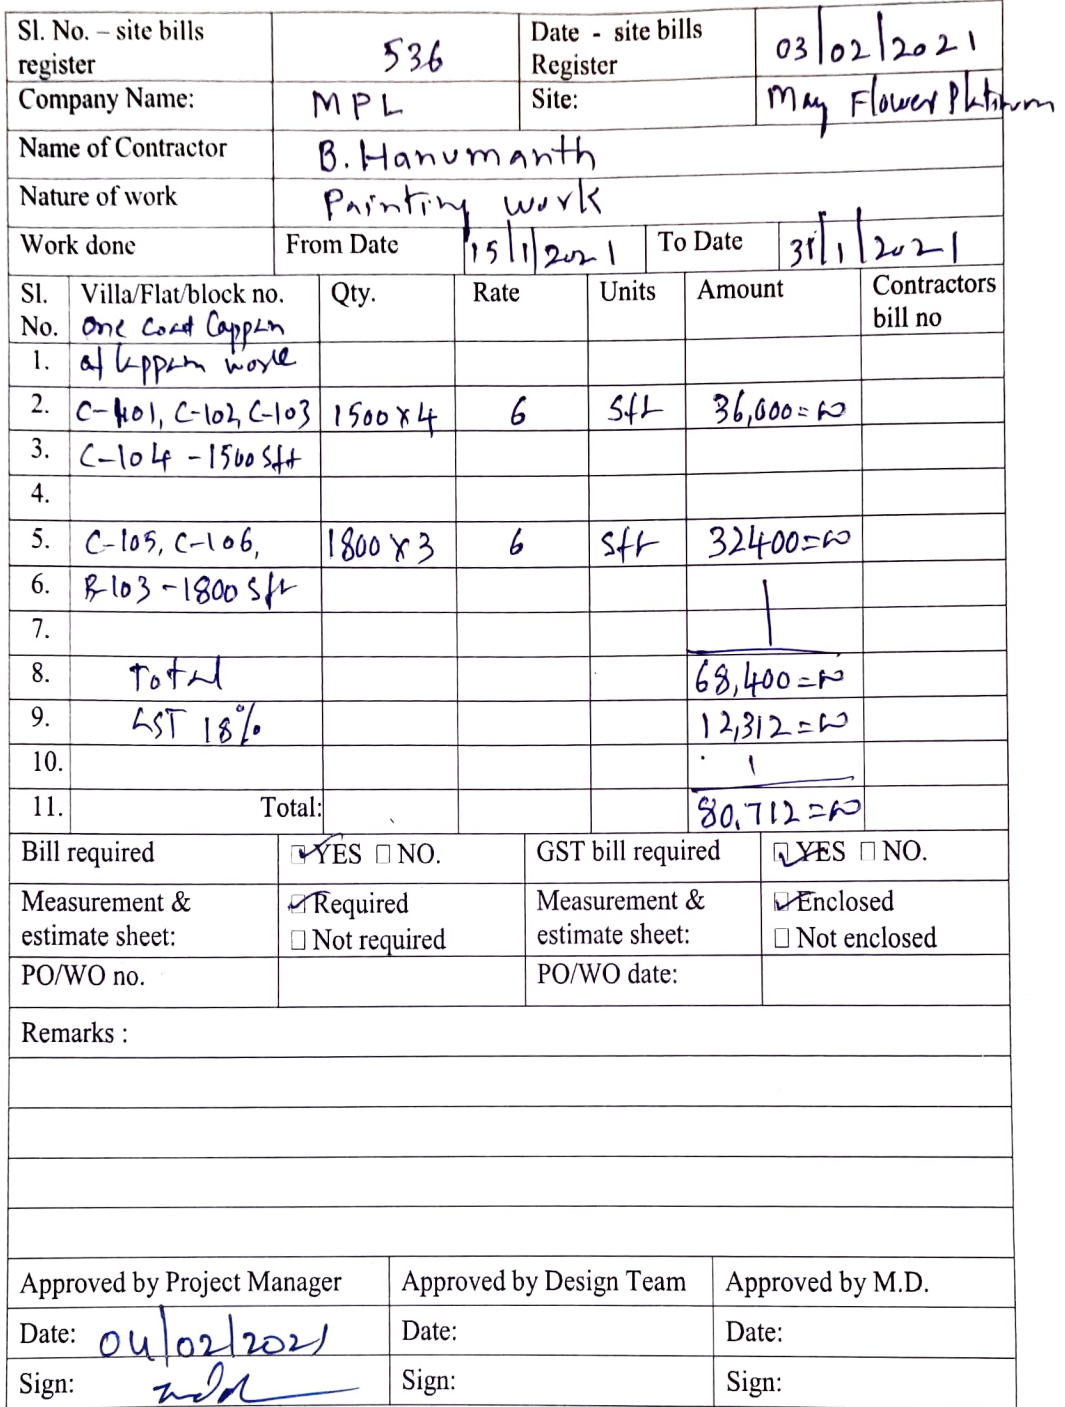 Sl. No. – site bills register 536 Date - site bills Register 03/02/2021
Company Name: MPL Site: May Flower Platinum
Name of Contractor B. Hanumanth
Nature of work Painting work
Work done From Date 15/1/2021 To Date 31/1/2021
Sl. No. Villa/Flat/block no. Qty. Rate Units Amount Contractors bill no
One Coat
1. of work
2. C-101, C-102, C-103 1500 x 4 6 Sft 36,000=00
3. C-104 - 1500 Sft
4.
5. C-105, C-106, 1800 x 3 6 Sft 32400=00
6. B-103 - 1800 Sft
7.
8. Total 68,400=00
9. GST 18% 12,312=00
10.
11. Total: 80,712=00
Bill required YES NO. GST bill required YES NO.
Measurement & estimate sheet: Required Not required Measurement & estimate sheet: Enclosed Not enclosed
PO/WO no. PO/WO date:
Remarks :
Approved by Project Manager Approved by Design Team Approved by M.D.
Date: 04/02/2021 Date: Date:
Sign: Sign: Sign: